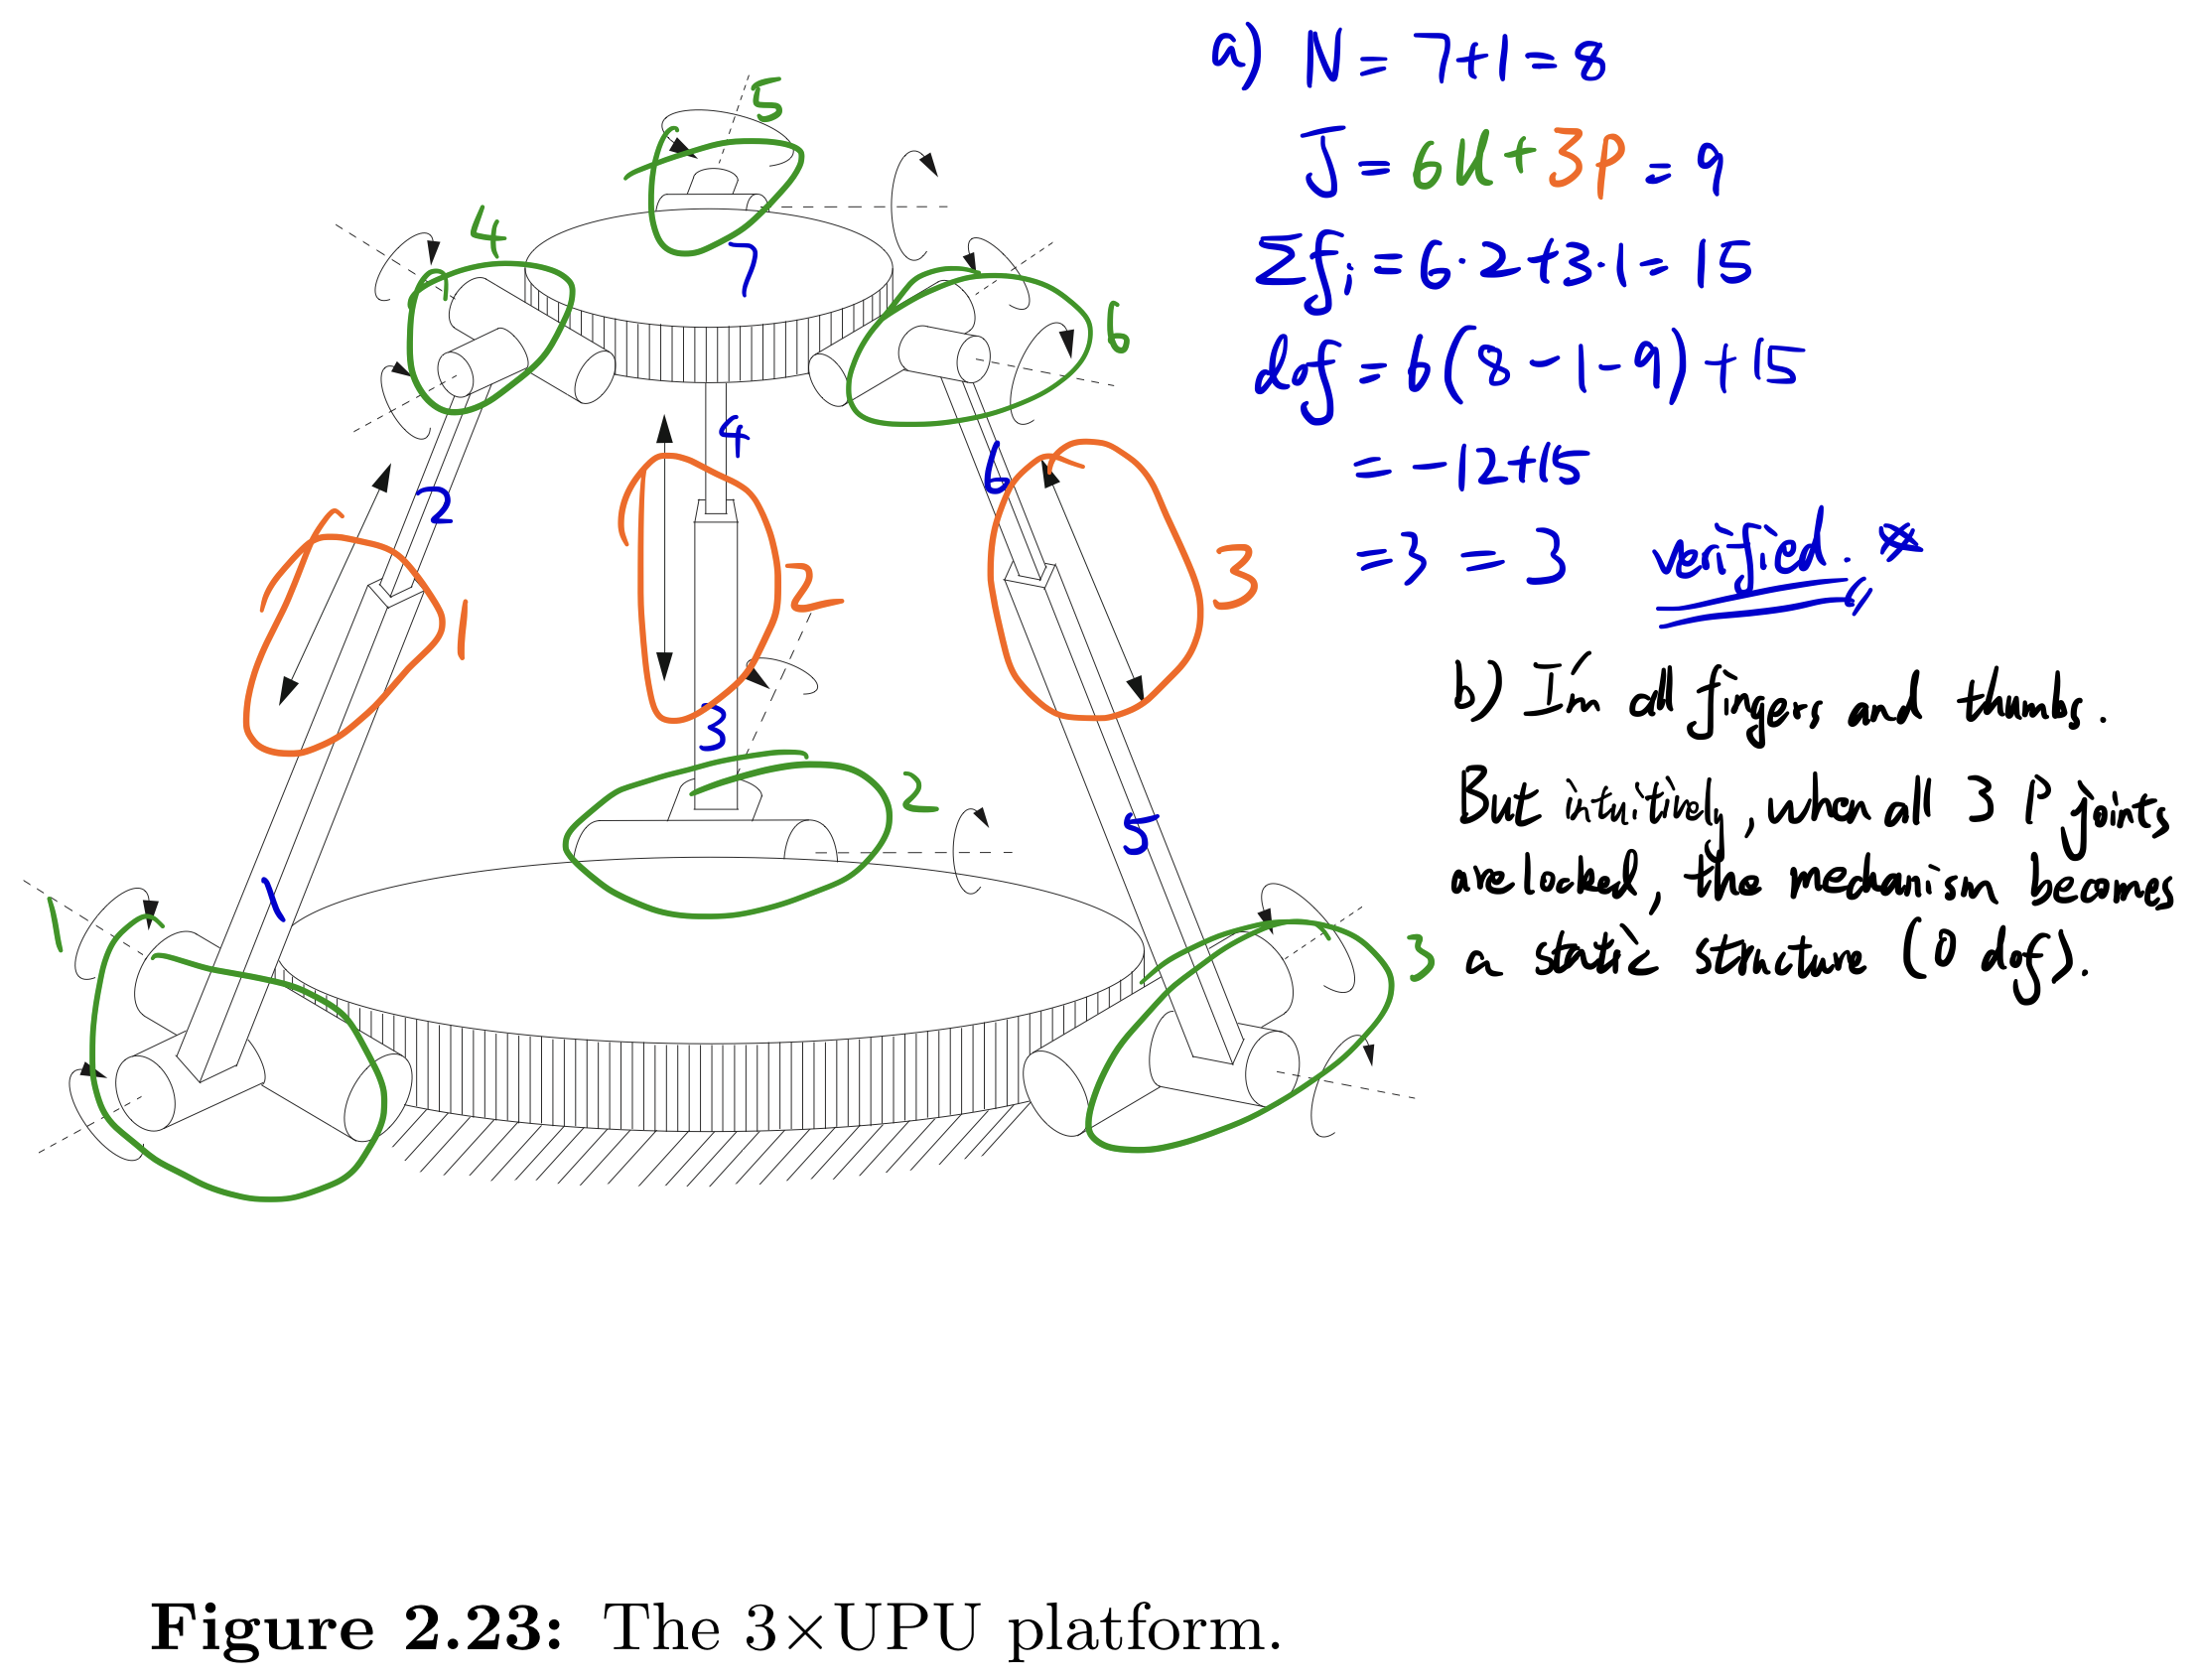 a) N = 7+1=8
J = 6U+3P = 9
Σfi = 6·2+3·1= 15
dof = 6(8-1-9)+15
= -12+15
=3 = 3 verified. *
b) I'm all fingers and thumbs.
But intuitively, when all 3 P joints
are locked, the mechanism becomes
a static structure (0 dof).
5
4
7
6
4
6
2
1
2
3
3
2
5
1
1
3
Figure 2.23: The 3×UPU platform.